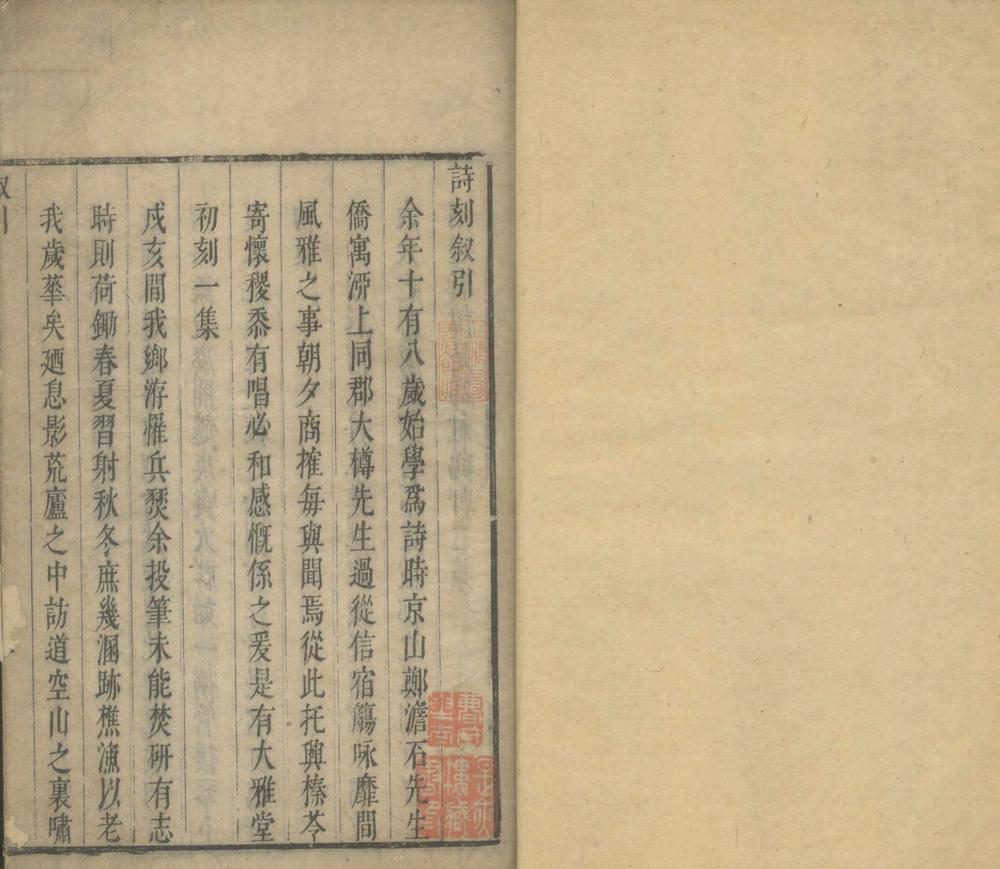 詩刻叙引
余年十有八歲始學爲詩時京山鄭澹石先生
僑寓泖上同郡大樽先生過從信宿觴咏靡間
風雅之事朝夕商搉每與聞焉從此托興榛苓
寄懷稷黍有唱必和感慨係之爰是有大雅堂
初刻一集
戌亥間我鄉洊罹兵燹余投筆未能焚研有志
時則荷鋤春夏習射秋冬庶幾溷跡樵漁以老
我歲華矣廼息影荒廬之中訪道空山之裏嘯
叙引